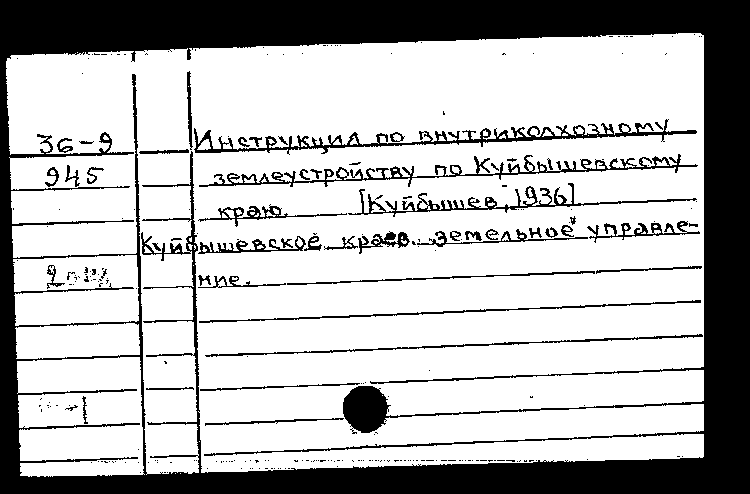 36-9
945
Инструкция по внутриколхозному
землеустройству по Куйбышевскому
краю. [Куйбышев, 1936]
Куйбышевское краев. земельное управле-
ние.